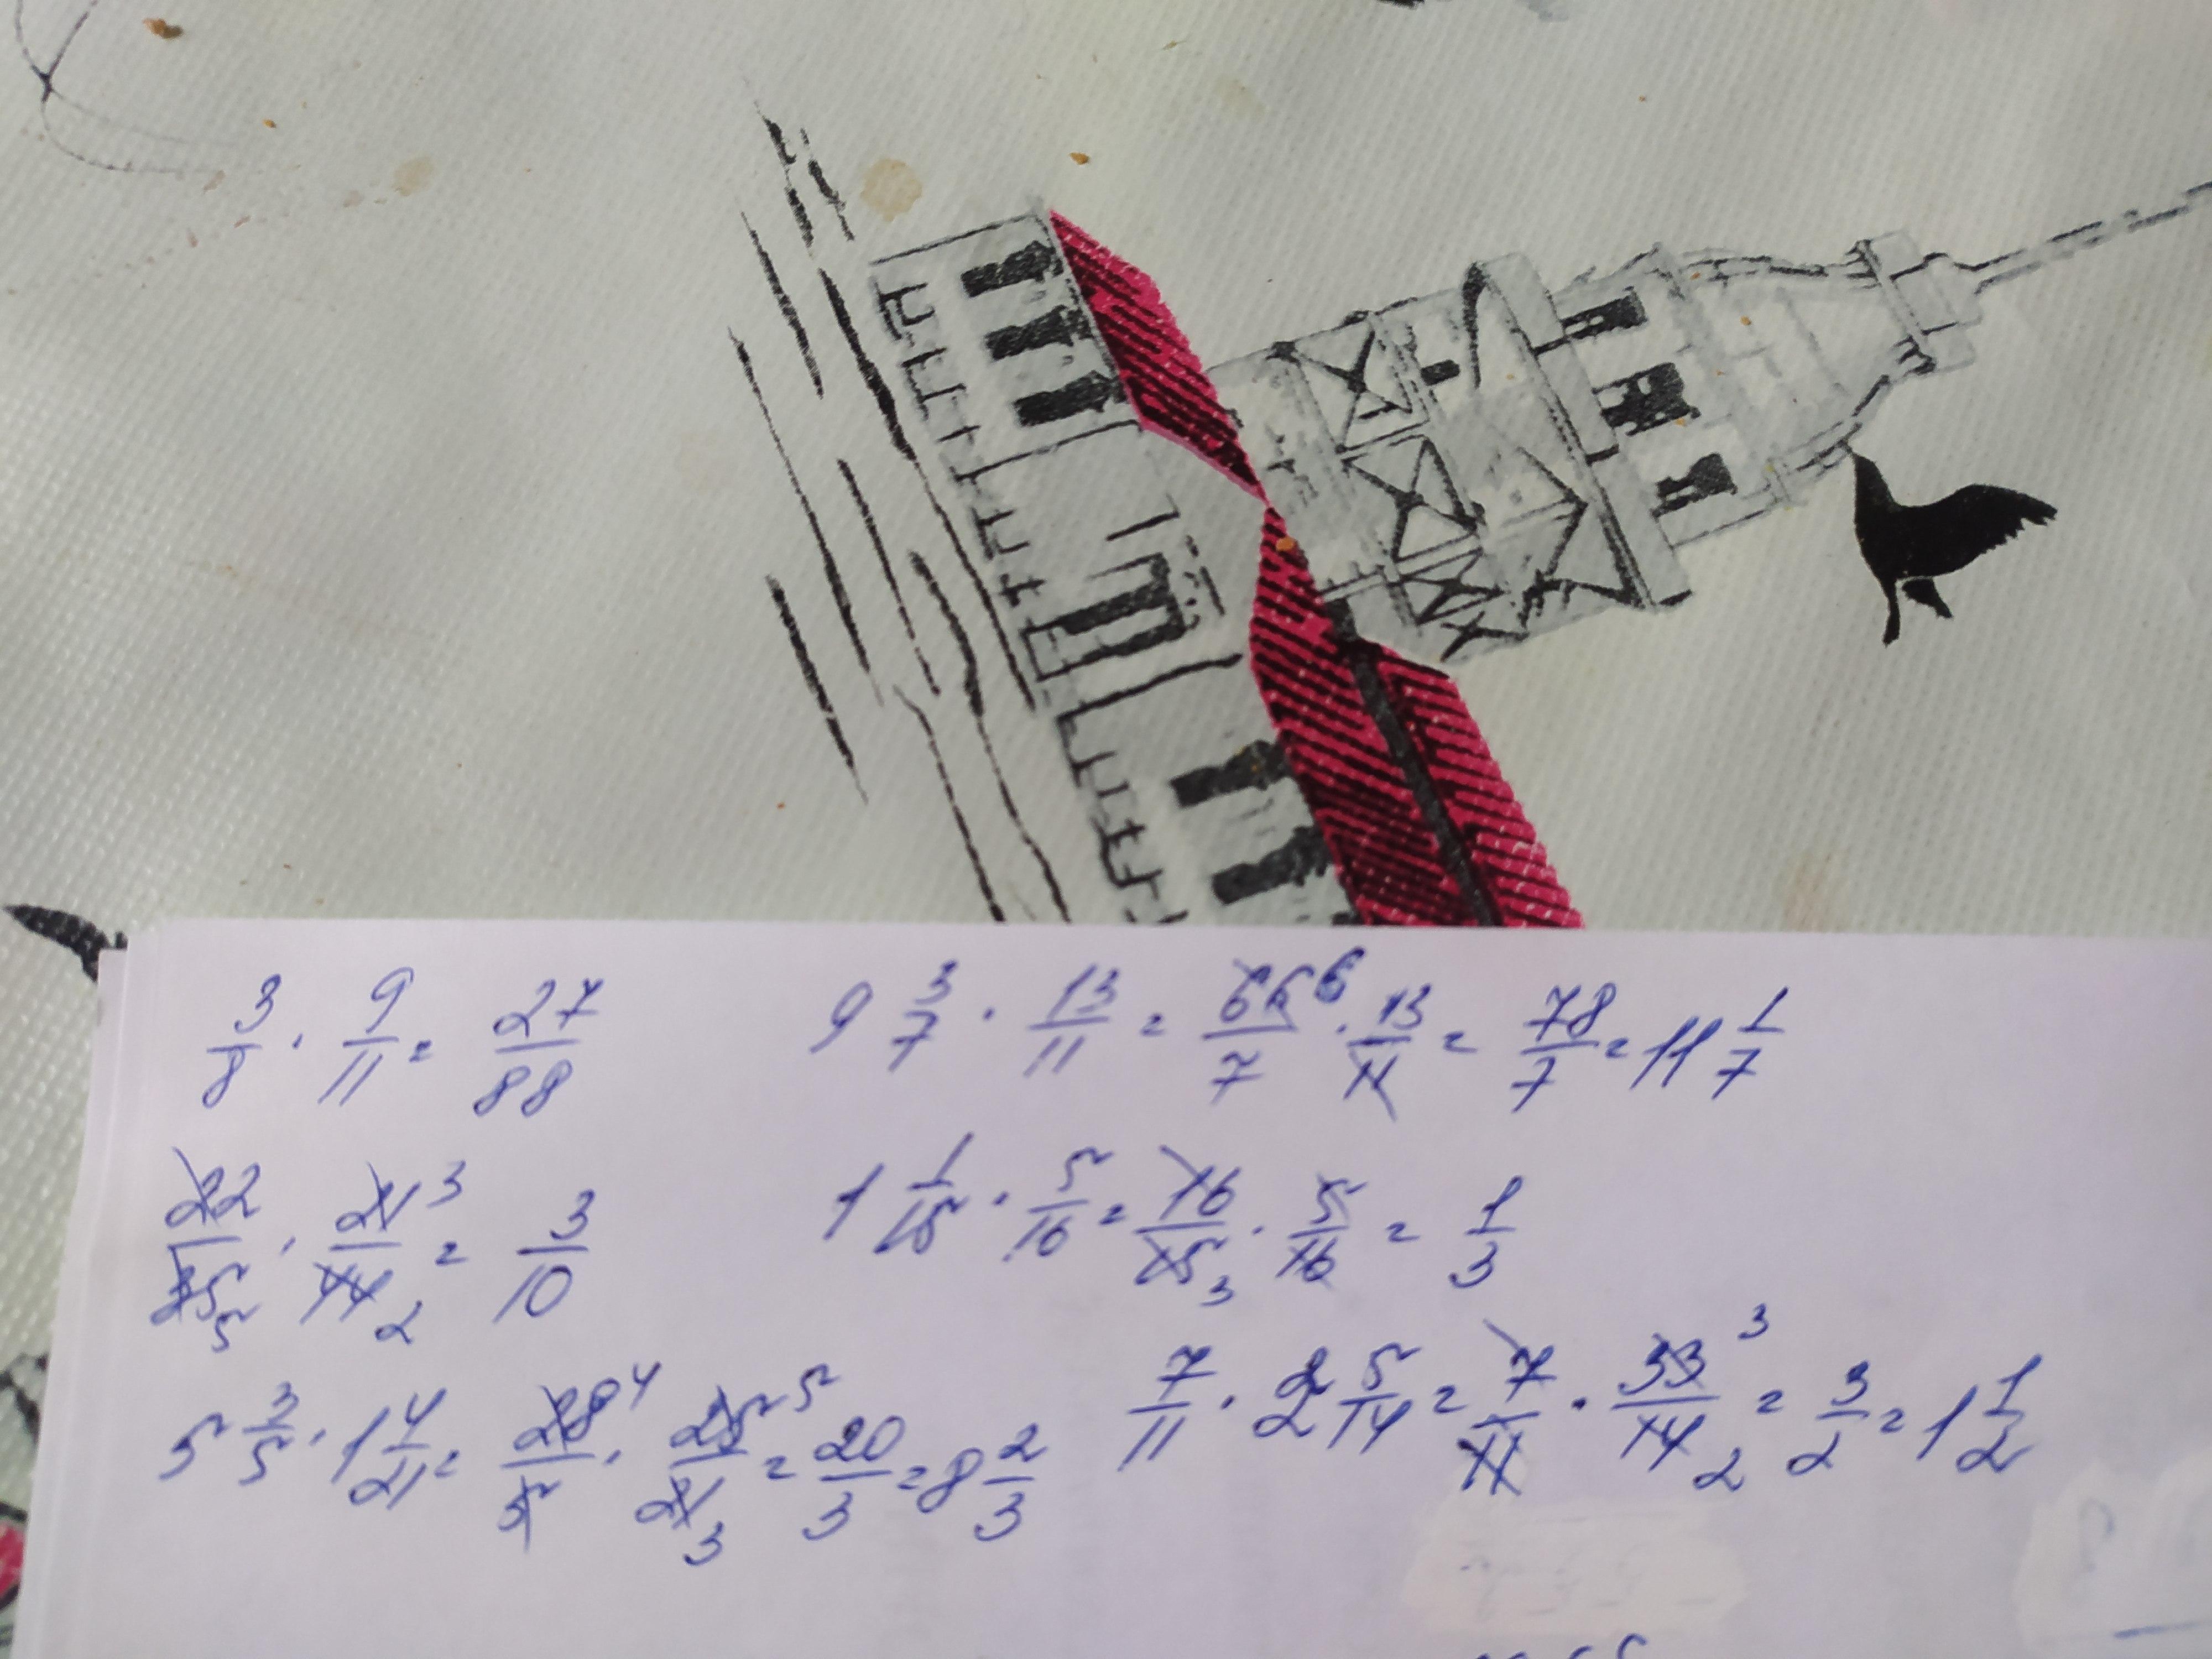 3/8 · 9/11 = 27/88
9 3/7 · 13/11 = 66/7 6 · 13/11 = 78/7 = 11 1/7
22/35 5 · 21 3/44 2 = 3/10
1 1/15 · 5/16 = 16/15 3 · 5/16 = 1/3
5 3/5 · 1 4/21 = 28 4/5 · 25 5/21 3 = 20/3 = 8 2/3
7/11 · 2 5/14 = 7/11 · 33 3/14 2 = 3/2 = 1 1/2